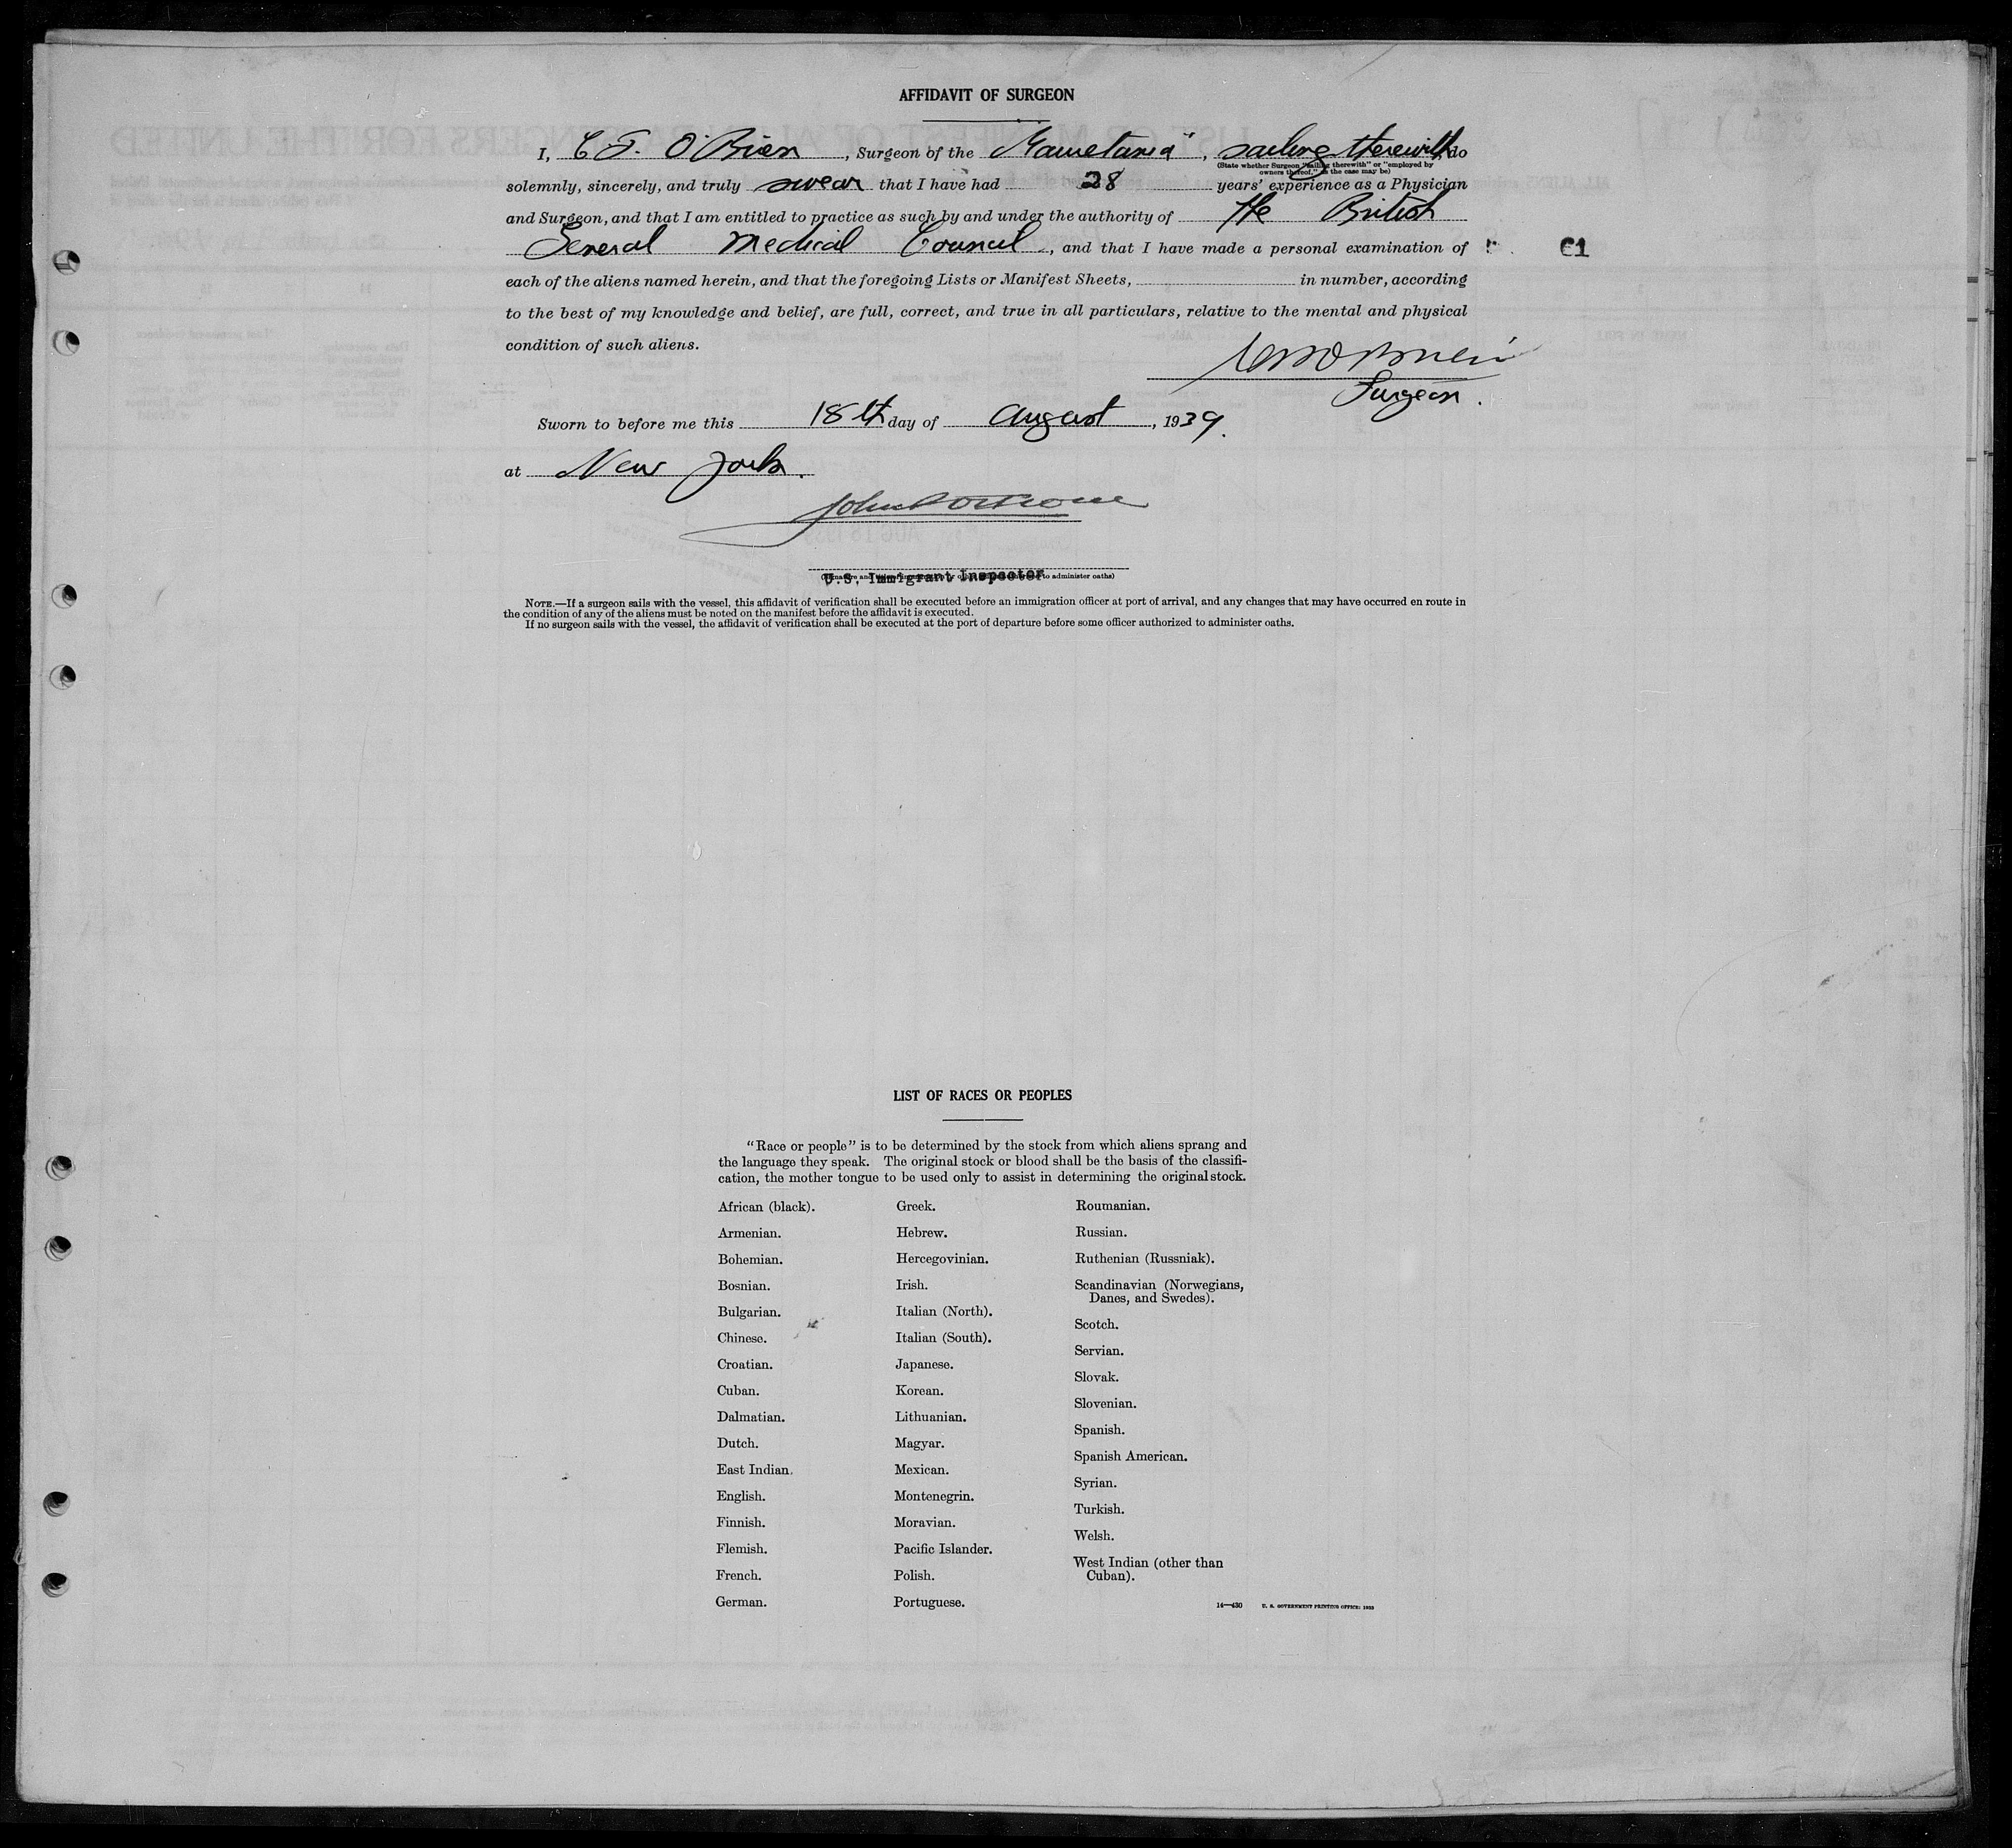 AFFIDAVIT OF SURGEON
I, C J. O'Brien, Surgeon of the "Mauretania", sailing therewith, do
(State whether Surgeon "sailing therewith" or "employed by
owners thereof," as the case may be)
solemnly, sincerely, and truly swear that I have had 28 years' experience as a Physician
and Surgeon, and that I am entitled to practice as such by and under the authority of the British
General Medical Council, and that I have made a personal examination of
61
each of the aliens named herein, and that the foregoing Lists or Manifest Sheets, in number, according
to the best of my knowledge and belief, are full, correct, and true in all particulars, relative to the mental and physical
condition of such aliens.
Surgeon.
Sworn to before me this 18th day of August, 1939.
at New York.
U.S. Immigrant Inspector
to administer oaths)
NOTE.—If a surgeon sails with the vessel, this affidavit of verification shall be executed before an immigration officer at port of arrival, and any changes that may have occurred en route in
the condition of any of the aliens must be noted on the manifest before the affidavit is executed.
If no surgeon sails with the vessel, the affidavit of verification shall be executed at the port of departure before some officer authorized to administer oaths.
LIST OF RACES OR PEOPLES
"Race or people" is to be determined by the stock from which aliens sprang and
the language they speak. The original stock or blood shall be the basis of the classifi-
cation, the mother tongue to be used only to assist in determining the original stock.
African (black).
Armenian.
Bohemian.
Bosnian.
Bulgarian.
Chinese.
Croatian.
Cuban.
Dalmatian.
Dutch.
East Indian.
English.
Finnish.
Flemish.
French.
German.
Greek.
Hebrew.
Hercegovinian.
Irish.
Italian (North).
Italian (South).
Japanese.
Korean.
Lithuanian.
Magyar.
Mexican.
Montenegrin.
Moravian.
Pacific Islander.
Polish.
Portuguese.
Roumanian.
Russian.
Ruthenian (Russniak).
Scandinavian (Norwegians,
Danes, and Swedes).
Scotch.
Servian.
Slovak.
Slovenian.
Spanish.
Spanish American.
Syrian.
Turkish.
Welsh.
West Indian (other than
Cuban).
14—430 U. S. GOVERNMENT PRINTING OFFICE: